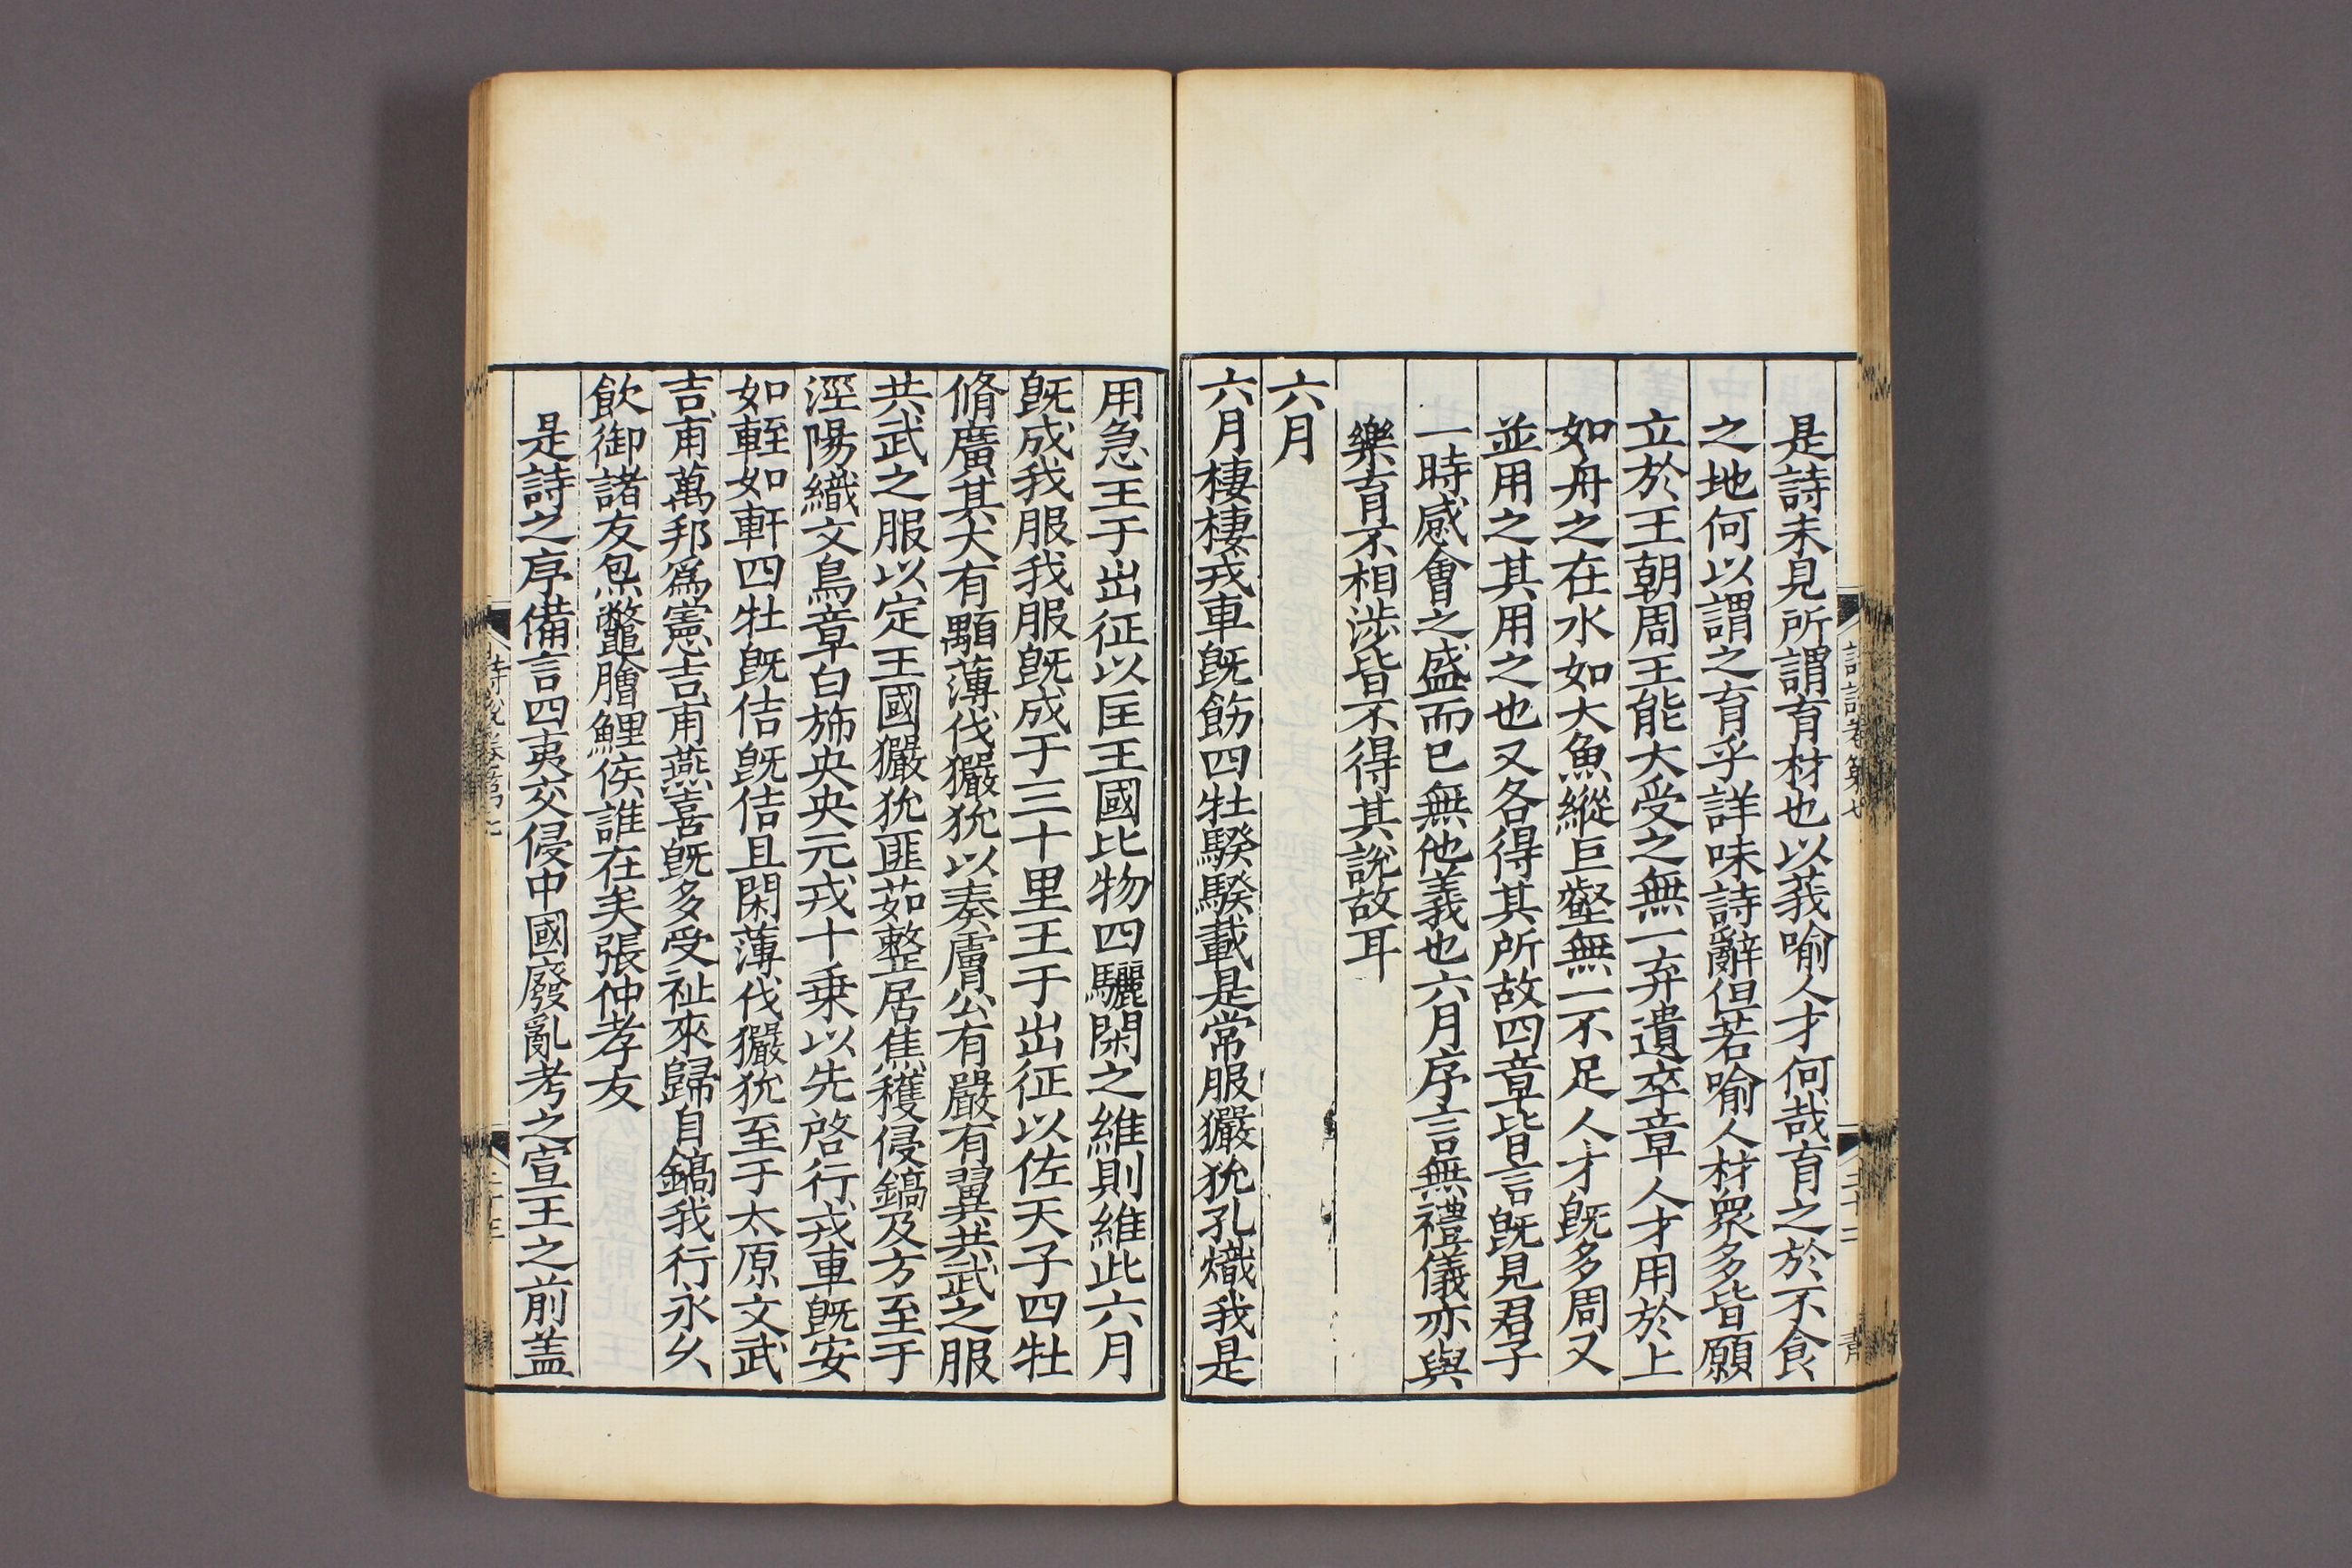 是詩未見所謂育材也以莪喻人才何哉育之於不食
之地何以謂之育乎詳味詩辭但若喻人材衆多皆願
立於王朝周王能大受之無一弃遺卒章人才用於上
如舟之在水如大魚縱巨壑無一不足人才旣多周又
並用之其用之也又各得其所故四章皆言旣見君子
一時感會之盛而已無他義也六月序言無禮儀亦與
樂育不相涉皆不得其說故耳
六月
六月棲棲戎車旣飭四牡騤騤載是常服玁狁孔熾我是
用急王于出征以匡王國比物四驪閑之維則維此六月
旣成我服我服旣成于三十里王于出征以佐天子四牡
脩廣其大有顒薄伐玁狁以奏膚公有嚴有翼共武之服
共武之服以定王國玁狁匪茹整居焦穫侵鎬及方至于
涇陽織文鳥章白斾央央元戎十乗以先啓行戎車旣安
如輊如軒四牡旣佶旣佶且閑薄伐玁狁至于太原文武
吉甫萬邦爲憲吉甫燕喜旣多受祉來歸自鎬我行永乆
飲御諸友炰鼈膾鯉侯誰在矣張仲孝友
是詩之序備言四夷交侵中國廢亂考之宣王之前盖
詩說卷第七